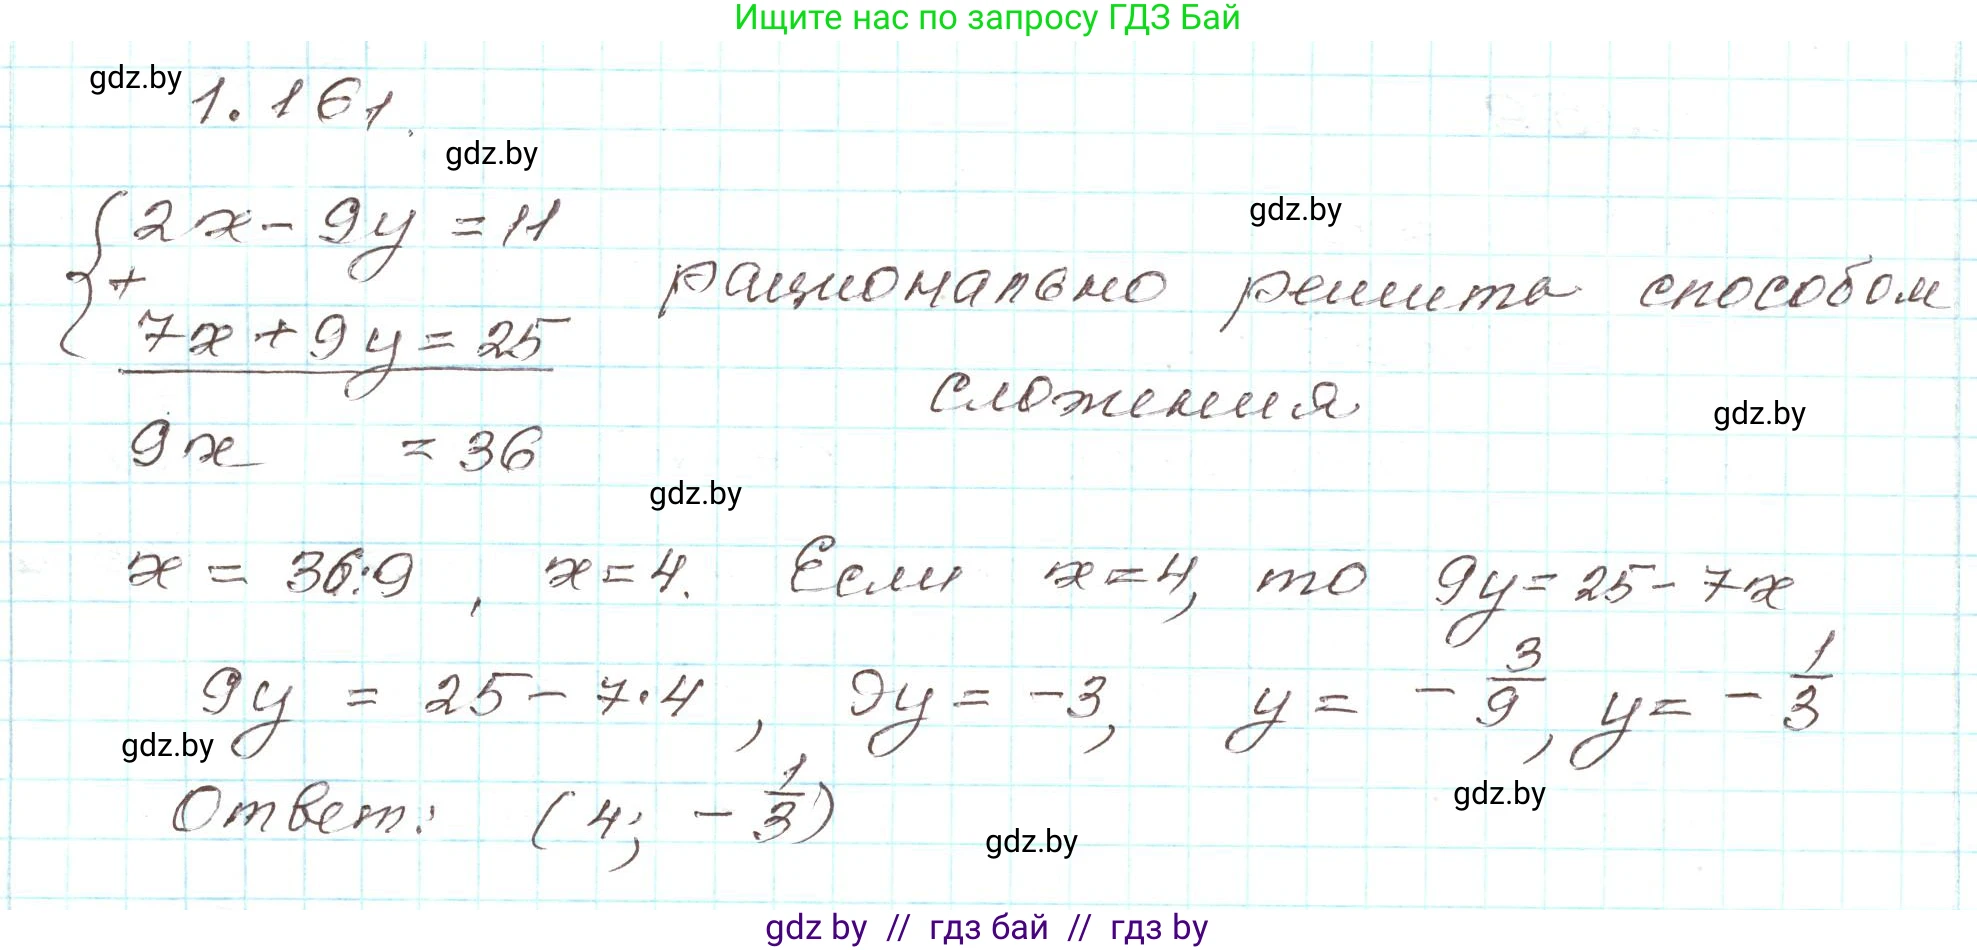 Ищите нас по запросу ГДЗ Бай
gdz.by
1.161.
gdz.by
2x - 9y = 11
gdz.by
+
рационально решить способом
7x + 9y = 25
сложения
gdz.by
9x = 36
gdz.by
x = 36:9, x = 4. Если x = 4, то 9y = 25 - 7x
9y = 25 - 7·4, 9y = -3, y = -3/9, y = -1/3
gdz.by
gdz.by
Ответ: (4; -1/3)
gdz.by
gdz by // гдз бай // гдз by